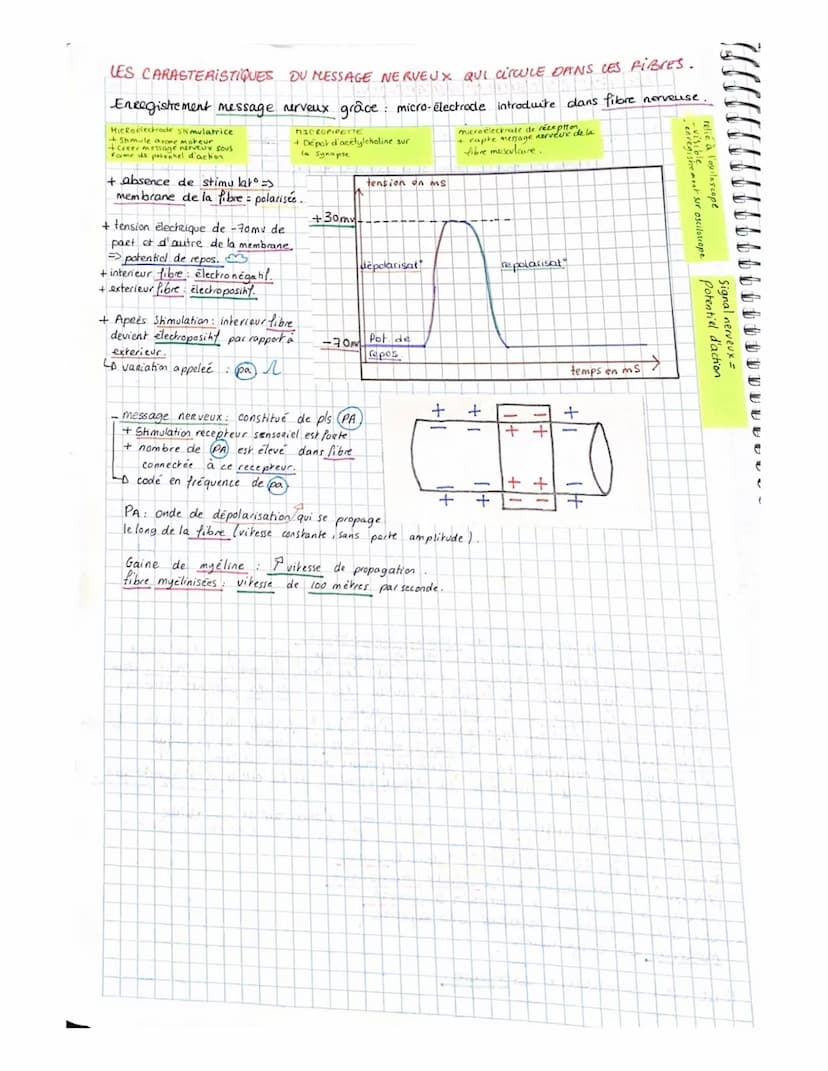 LES CARASTERISTIQUES DU MESSAGE NERVEUX QUI CIRCULE DANS LES FIBRES.
Enregistrement message nerveux grâce : micro-électrode introduite dans fibre nerveuse.
Microélectrode stimulatrice
+ Stimule axone moteur
+ Créer message nerveux sous
forme de potentiel d'action
MICROPIPETTE
+ Dépot d'acétylcholine sur
la synapse
microélectrode de réception
+ capte message nerveux de la
fibre musculaire.
relié à l'oscilloscope
- visible
enregistrement sur oscilloscope
Signal nerveux =
Potentiel d'action
+ absence de stimulat° =>
membrane de la fibre = polarisée.
+ tension électrique de -70mv de
part et d'autre de la membrane
=> potentiel de repos.
+ interieur fibre : électronégatif.
+ exterieur fibre : électropositif.
+ Après stimulation : interieur fibre
devient électropositif par rapport à
exterieur.
↳ variation appelée : pa
tension en ms
+30mv
dépolarisat°
repolarisat°
-70m
Pot de
repos
temps en ms
- message nerveux : constitué de pls PA
+ Stimulation recepteur sensoriel est forte
+ nombre de PA est élevé dans fibre
connectée à ce recepteur.
↳ codé en fréquence de pa
+ + - - +
- - + + -
- - + + -
+ + - - +
PA : onde de dépolarisation qui se propage
le long de la fibre (vitesse constante, sans perte amplitude).
Gaine de myéline : ↗ vitesse de propagation.
fibre myélinisées : vitesse de 100 mètres par seconde.